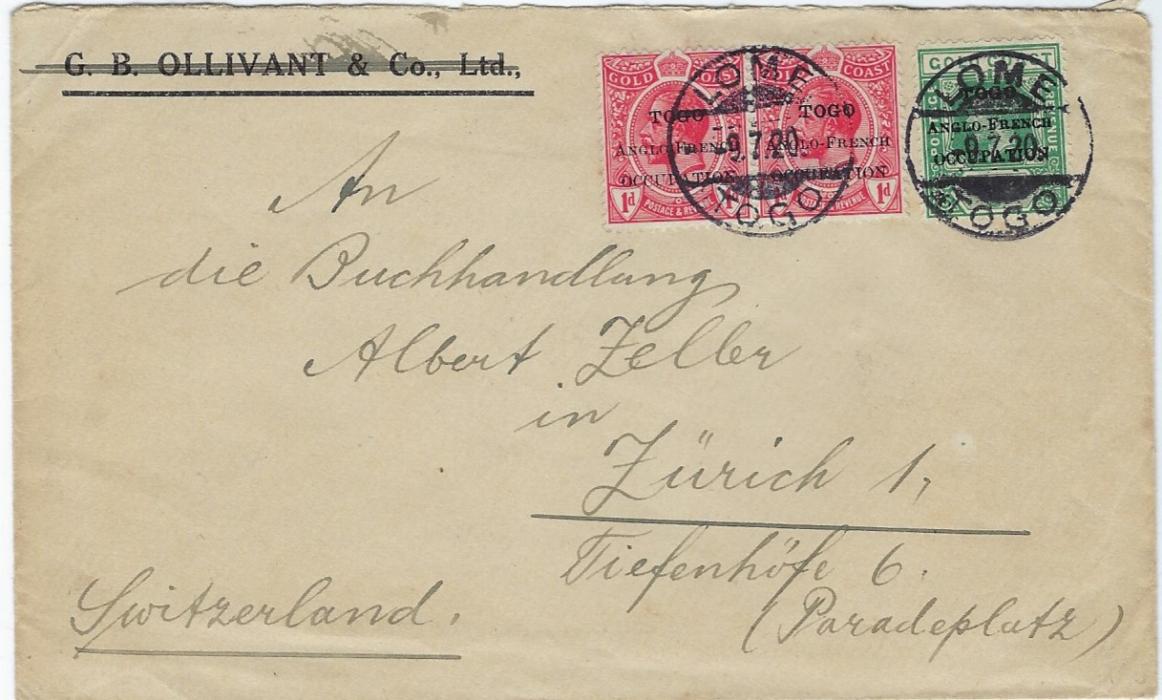 G. B. OLLIVANT & Co., Ltd.,
GOLD COAST
TOGO TOGO
ANGLO-FRENCH ANGLO-FRENCH
OCCUPATION OCCUPATION
1d 1d
POSTAGE & REVENUE
LOME
9.7.20
TOGO
TOGO
ANGLO-FRENCH
OCCUPATION
LOME
9.7.20
TOGO
An
die Buchhandlung
Albert Zeller
in
Zürich 1,
Tiefenhöfe 6.
(Paradeplatz)
Switzerland.